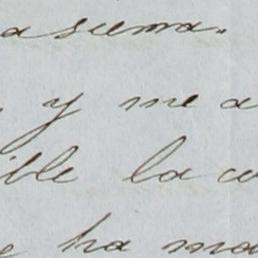 asuma.
y me a
ible la co
ha ma